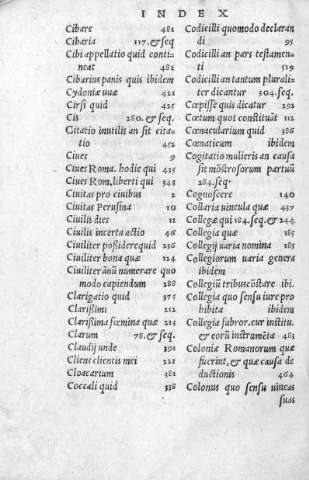 INDEX
Cibare 481
Cibaria 117. & seq
Cibi appellatio quid conti-
neat 481
Cibarius panis quis ibidem
Cydoniæ uuæ 421
Cirsi quid 425
Cis 280. & seq.
Citatio inutilis an sit cita-
tio 452
Ciues 9
Ciues Roma. hodie qui 435
Ciues Rom. liberti qui 343
Ciuitas pro ciuibus 2
Ciuitas Perusina 10
Ciuilis dies 11
Ciuilis incerta actio 46
Ciuiliter possiderequid 256
Ciuiliter bona quæ 124
Ciuiliter ānū numerare quo
modo capiendum 288
Clarigatio quid 375
Clarissimi 212
Clarissima fœmina quæ 213
Clarum 78. & seq.
Claudij unde 391
Cliens clientis mei 225
Cloacarum 381
Coccali quid 338
Codicilli quomodo declaran
di 95
Codicilli an pars testamen-
ti 519
Codicilli an tantum plurali-
ter dicantur 304. seq.
Cœpisse quis dicatur 292
Cœtum quot constituāt 112
Cœnacularium quid 386
Cœnaticum ibidem
Cogitatio mulieris an causa
sit mōstrosorum partuū
284. seq.
Cognoscere 140
Collaria uincula quæ 437
Collegæ qui 184. seq. & 244
Collegia quæ 185
Collegij uaria nomina 185
Collegiorum uaria genera
ibidem
Collegiū tribus cōstare ibi.
Collegia quo sensu iure pro
hibita ibidem
Collegia fabror. cur institu.
& eorū instrumēta 483
Coloniæ Romanorum quæ
fuerint, & quæ causa de
ductionis 464
Colonus quo sensu uineas
suas